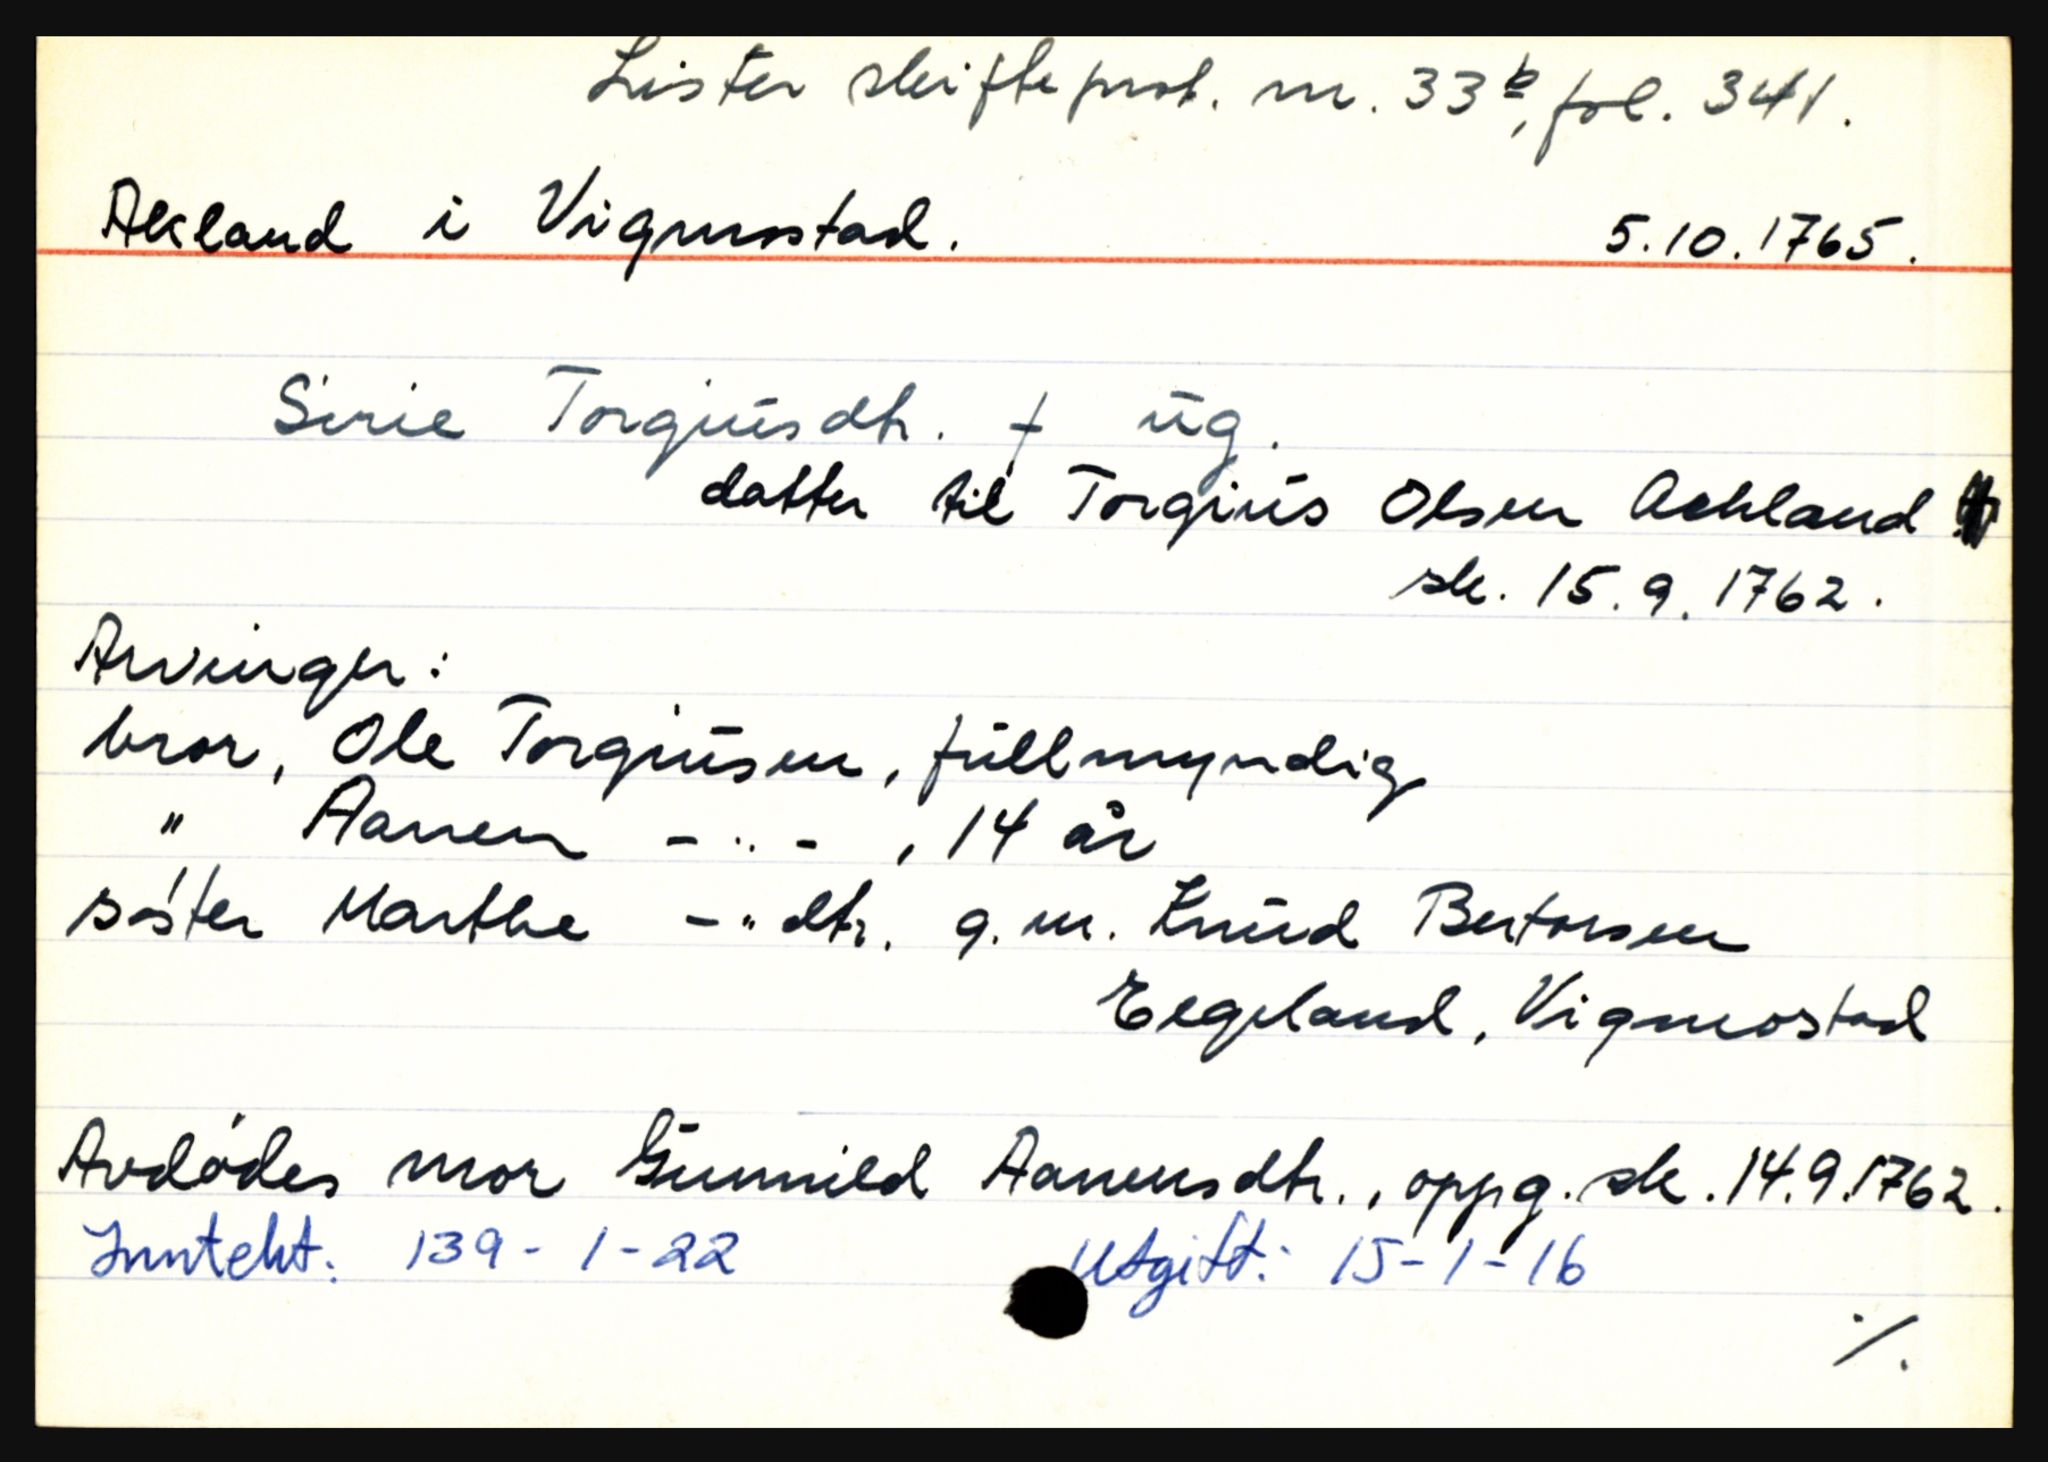 Lister skifteprot. nr. 33b, fol. 341.
Akland i Vigmostad. 5.10.1765.
Sirie Torgiusdtr. † ug.
datter til Torgius Olsen Achland
sk. 15.9.1762.
Arvinger:
bror, Ole Torgiusen, fullmyndig
" Aanen - " - , 14 år
søster Marthe - " dtr. g.m. Knud Bertorsen
Eegeland, Vigmostad
Avdødes mor Gunnild Aanensdtr., oppg. sk. 14.9.1762.
Inntekt: 139 - 1 - 22 Utgift: 15 - 1 - 16
./.